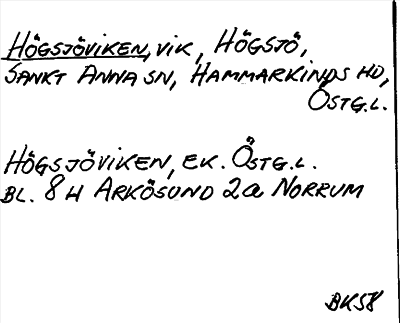 HÖGSJÖVIKEN, VIK, HÖGSJÖ,
SANKT ANNA SN, HAMMARKINDS HD,
ÖSTG.L.
HÖGSJÖVIKEN, EK. ÖSTG.L.
BL. 8 H ARKÖSUND 2a NORRUM
BKS8